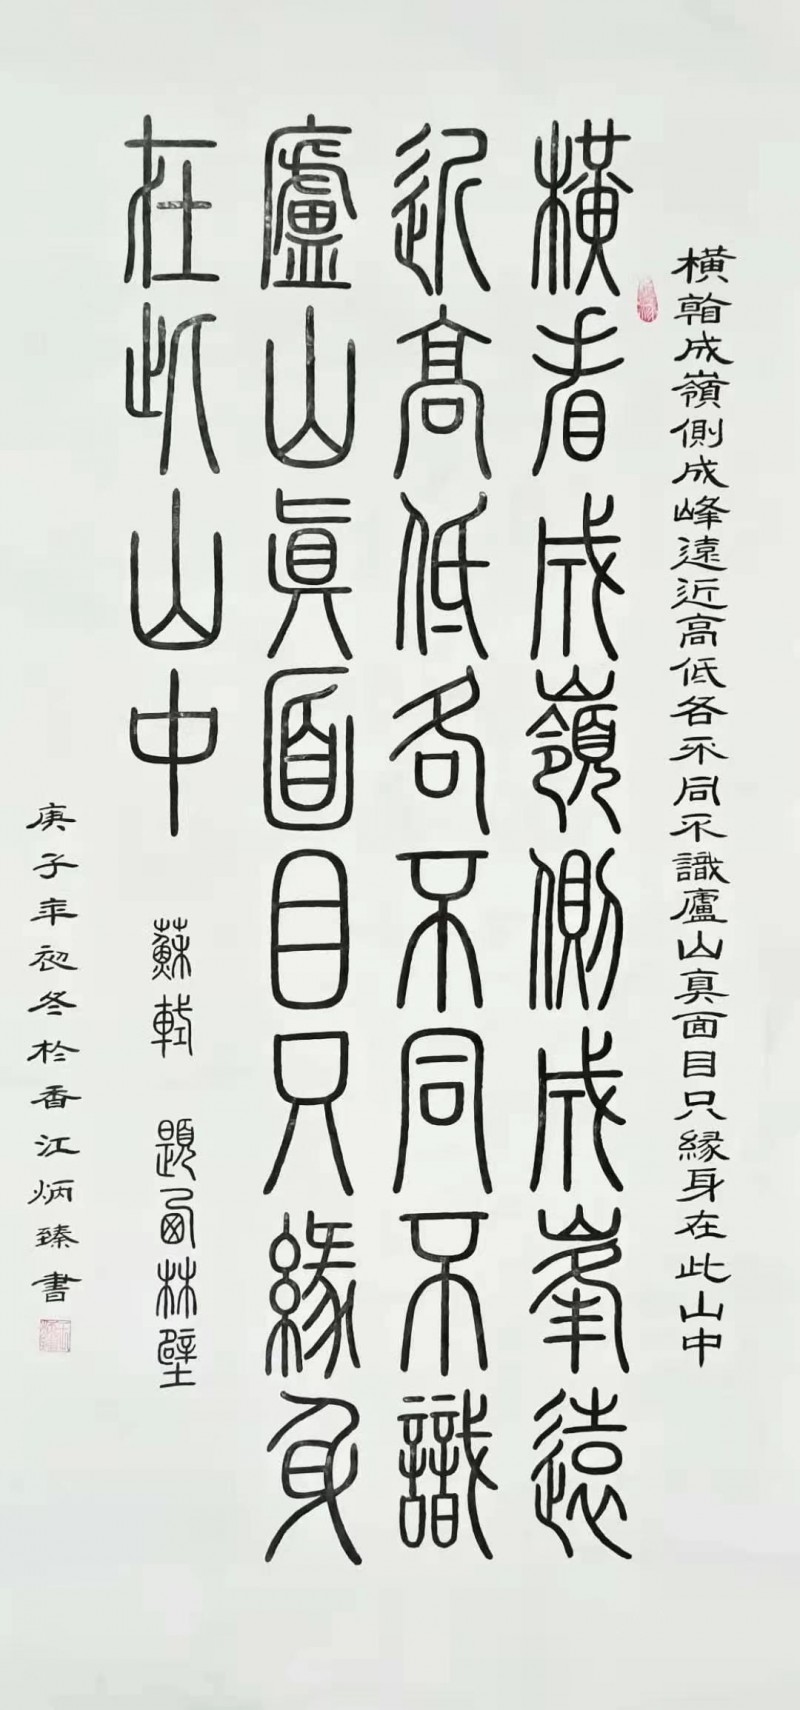 橫看成嶺側成峰遠近高低各不同不識廬山真面目只緣身在此山中
橫看成嶺側成峯遠
近高低各不同不識
廬山眞面目只緣身
在此山中
蘇軾 題西林壁
庚子年初冬於香江炳臻書